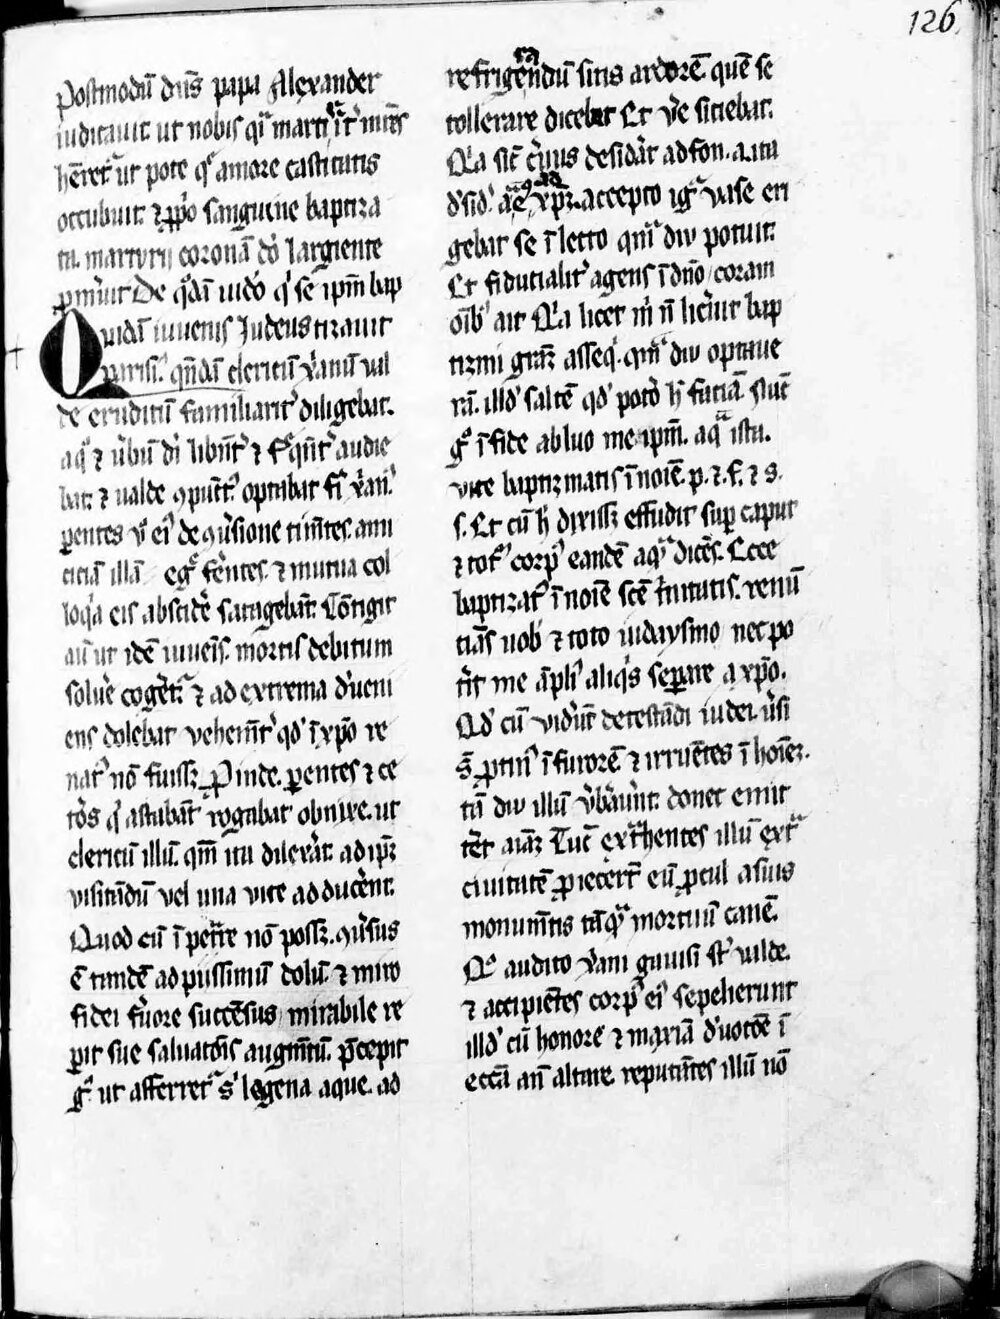 126.
Postmodū dn̄s papa Alexander
iudicauit ut nobis qͥ martiͬ int̄ mr̄es
hēretᷣ ut pote qͥ amore castitatis
occubuit. ⁊ ꝓpͦo sanguine baptiza
tꝰ. martyrij coronā dn̄o largiente
ꝓmͥuit De qͦdā iudeo qͥ se ip̄m bap
Quidā iuuenis Iudeus tizauit
parisiꝰ. quēdā clericū xͥanū ual
de eruditū familiarit̉ diligebat.
a qͦ ⁊ ub̉ū di libnt̉ ⁊ fͤqn̄t̉ audie
bat. ⁊ ualde ꝯpūctꝰ optabat fi xͥanꝰ.
ꝑentes ū eiꝰ de ꝯuͥsione tim̄tes ami
citiā illā egͤ ferentes. ⁊ mutua col
loqͥa eis abscidͤe satagebāt. Cōtigit
aū ut idē iuueīs. mortis debitum
soluͤe cogetᷣ ⁊ ad extrema dͥueni
ens dolebat uehem̄t̉ qd̓ ī xp̄o re
natꝰ nō fuissꝫ. Proinde. ꝑentes ⁊ ce
tͦos qͥ astabāt rogabat obnixe. ut
clericū illū. qm̄ ita dilexͥat. ad ip̄ꝫ
uisitādū uel una uice adducͤent.
Quod cū īpetͣre nō possꝫ. ꝯuͥsus
ē tandē ad piissimū dolū. ⁊ miro
fidei fͥuore succēsus mirabile re
ꝑit sue saluatōis augm̄tū. p̄cepit
gͦ ut afferretᷣ sͥ lagena aque. ad
refrigerandū sitis ardorē. quē se
tollerare dicebat Et uͤe sitiebat.
Qͥa sic̄ cͥuus desidͤat ad fon. a. ita
dͤsidͥ. aīa eͥ xp̄ꝫ. accepto igͥ uase eri
gebat se ī lecto qm̄ diu potuit.
Et fidutialit̉ agens ī dn̄o coram
oībꝫ ait Qͥa licet m̉ n̄ licͥuit bap
tizmi grā̄ꝫ asseqͥ. qm̄ diu optaue
rā. illd̓ saltē qd̓ potͦo hͥ faciā. Sic̄
gͦ ī fide abluo me ip̄m. aqͣ ista.
uice baptizmatis ī noīe. p. ⁊. f. ⁊ s.
s. Et cū hͦ dixissꝫ effudit suꝑ caput
⁊ totͫ corpꝰ eandē aqͣ dicēs. Ecce
baptizatꝰ ī noīe scē tͥnitatis. renū
tiās uob̉ ⁊ toto iudaysmo nec po
tͥit me āplꝰ aliqͥs seꝑare a xp̄o.
Qd̓ cū uidͥūt detestādi iudei. uͥsi
s̄ ꝓtinꝰ ī furorē ⁊ irruētes ī hoīeꝫ.
tā diu illū uͤbͣauͥt. donec emit
tͤet aīaꝫ Tūc extͣhentes illū extͣ
ciuitatē ꝓiecert̄ eū ꝓcul a suis
monum̄tis tāqͣ mortuū canē.
Qͦ audito xͥani gauisi st̉ ualde.
⁊ accipiētes corpꝰ eiꝰ sepelierunt
illd̓ cū honore ⁊ maxīa dͥuotōe ī
eccā an̄ altare. reputātes illū nō